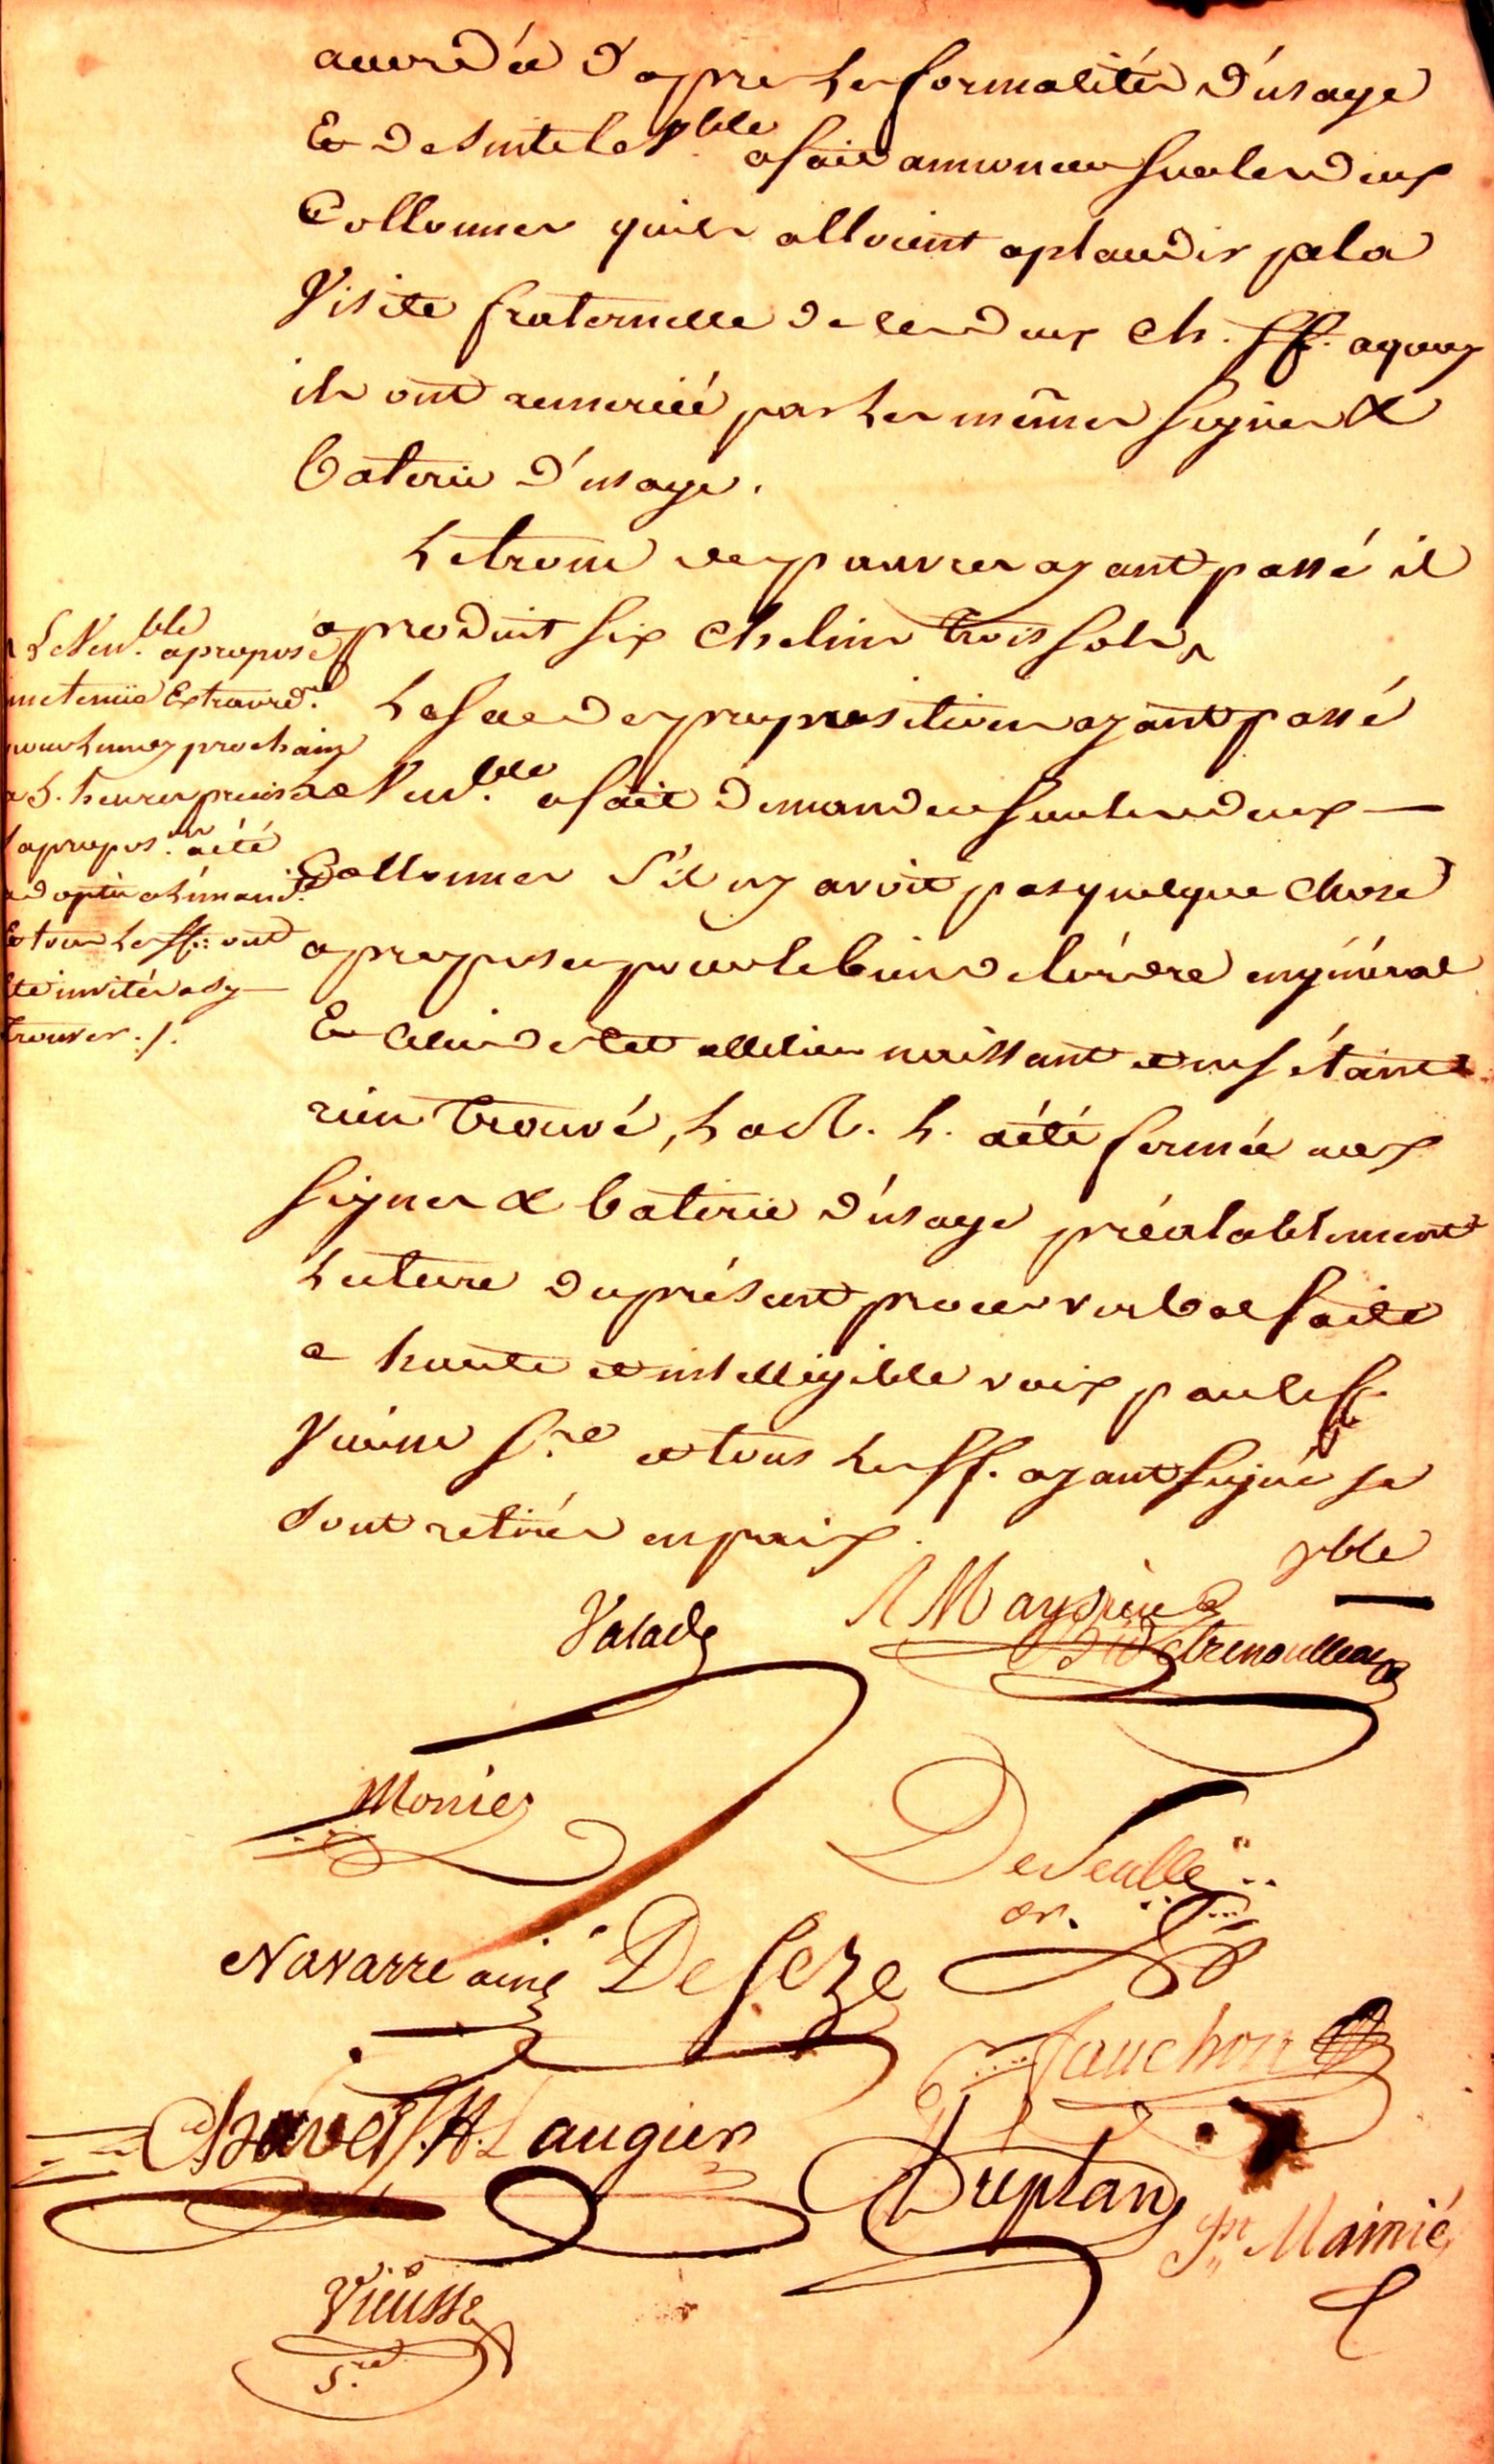 accordée d'apres les formalités d'usage
Et de suite le V.ble a fait annoncer sur les deux
Collonnes qu'ils alloient aplaudir pr la
Visite fraternelle de les deux Ch. ff. aquoy
ils ont remercié par les mêmes signes &
baterie d'usage.
Le tronc des pauvres ayant passé il
a produit six Chelins trois sols ^
Le sac des propositions ayant passé
Le Ven.ble a fait demander sur les deux —
Collonnes s'il ny avoit pas quelque chose
a proposer pour le bien de l'ordre en général
Et celui de cet attelier naissant et ne s'étant
rien trouvé, la R. L. a été fermée aux
signes & baterie d'usage préalablement
lecture du présent proces verbal faite
a haute et intelligible voix par le ff.
Vieusse S.re et tous les ff. ayant signé se
sont retirés en paix.
^ Le Ven.ble a proposé
une tenüe Extraord.re
pour lundy prochain
a 5. heures précises
la propos.on a été
adoptée a l'unani.té
Et tous les ff:: ont
été invités a s'y —
trouver ./.
Vble
Valade
Monier
DeSeulle
or.
Navarre ainé
DeSeze
Fauchon
Chavet
J.H. Laugier
Duplan
Pre Mainié
Vieusse
S.re